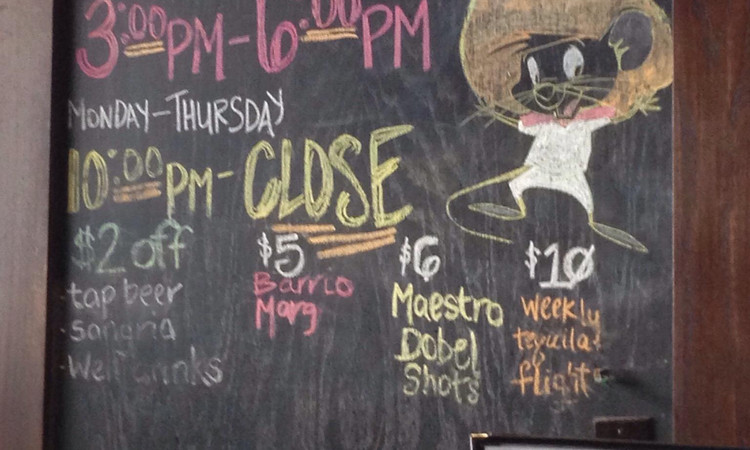 3:00PM-6:00PM
MONDAY-THURSDAY
10:00PM-CLOSE
$2 off
·tap beer
·sangria
·Well drinks
$5
Barrio
Marg
$6
Maestro
Dobel
Shots
$10
weekly
tequila
flights